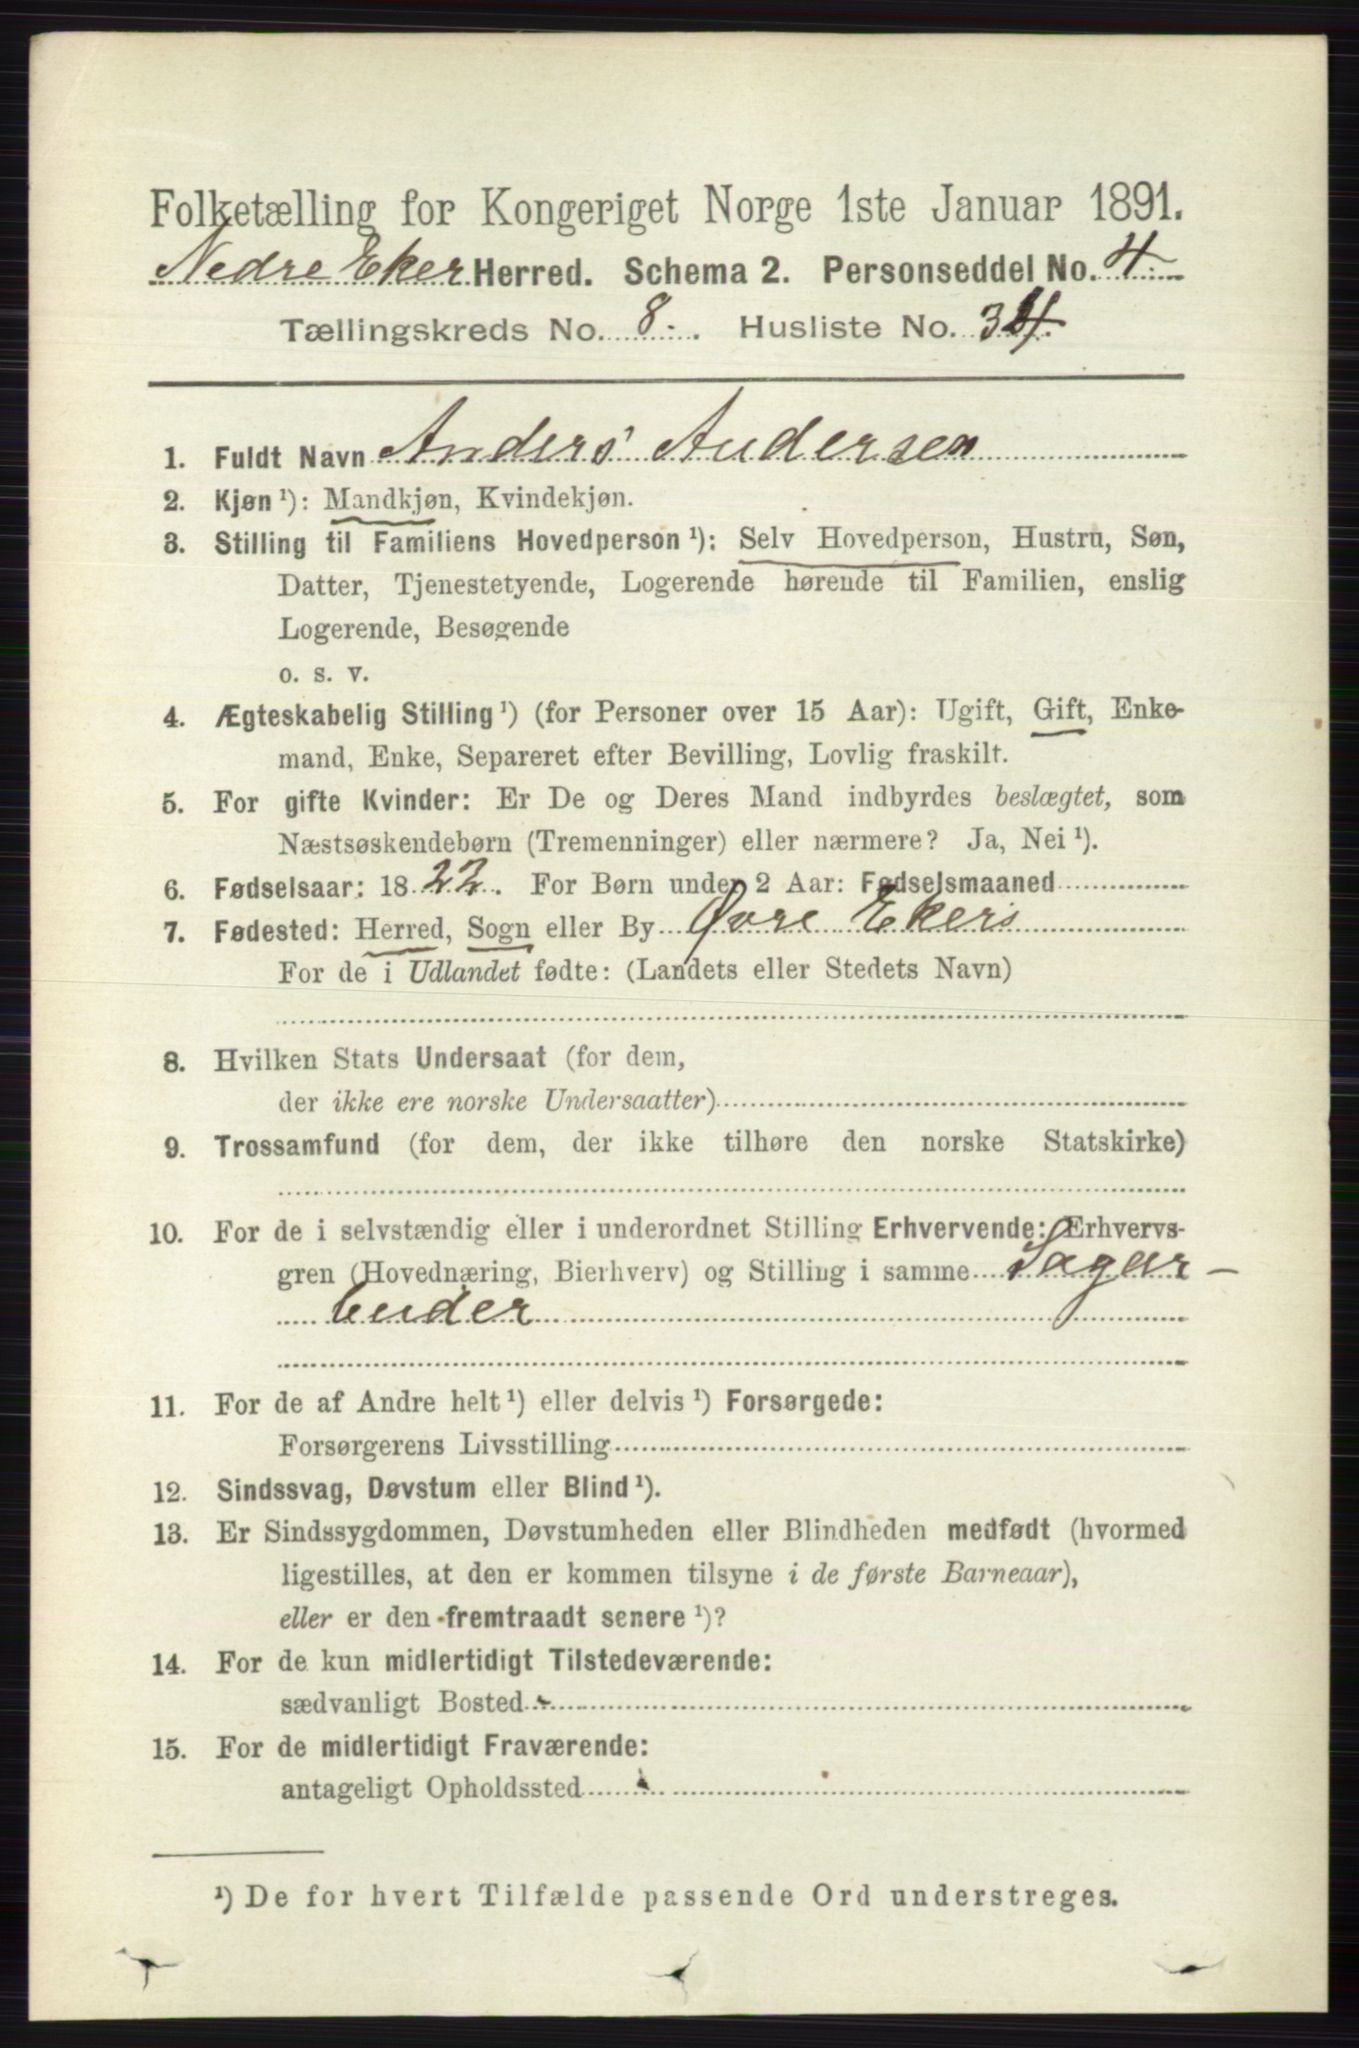 Folketælling for Kongeriget Norge 1ste Januar 1891.
Nedre Eker Herred. Schema 2. Personseddel No. 4.
Tællingskreds No. 8. Husliste No. 34.
1. Fuldt Navn Anders Andersen
2. Kjøn¹): Mandkjøn, Kvindekjøn.
3. Stilling til Familiens Hovedperson¹): Selv Hovedperson, Hustru, Søn,
Datter, Tjenestetyende, Logerende hørende til Familien, enslig
Logerende, Besøgende
o. s. v.
4. Ægteskabelig Stilling¹) (for Personer over 15 Aar): Ugift, Gift, Enke-
mand, Enke, Separeret efter Bevilling, Lovlig fraskilt.
5. For gifte Kvinder: Er De og Deres Mand indbyrdes beslægtet, som
Næstsøskendebørn (Tremenninger) eller nærmere? Ja, Nei¹).
6. Fødselsaar: 1822. For Børn under 2 Aar: Fødselsmaaned
7. Fødested: Herred, Sogn eller By Øvre Ekers
For de i Udlandet fødte: (Landets eller Stedets Navn)
8. Hvilken Stats Undersaat (for dem,
der ikke ere norske Undersaatter)
9. Trossamfund (for dem, der ikke tilhøre den norske Statskirke)
10. For de i selvstændig eller i underordnet Stilling Erhvervende: Erhvervs-
gren (Hovednæring, Bierhverv) og Stilling i samme Sagar-
beider
11. For de af Andre helt¹) eller delvis¹) Forsørgede:
Forsørgerens Livsstilling
12. Sindssvag, Døvstum eller Blind¹).
13. Er Sindssygdommen, Døvstumheden eller Blindheden medfødt (hvormed
ligestilles, at den er kommen tilsyne i de første Barneaar),
eller er den fremtraadt senere¹)?
14. For de kun midlertidigt Tilstedeværende:
sædvanligt Bosted
15. For de midlertidigt Fraværende:
antageligt Opholdssted
¹) De for hvert Tilfælde passende Ord understreges.